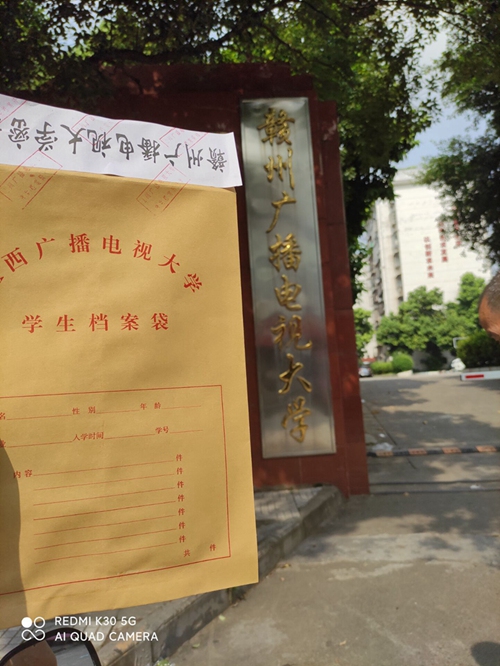 赣州广播电视大学密
西广播电视大学
学生档案袋
名 性别 年龄
入学时间 学号
内容 件
件
件
件
件
件
件
共 件
赣州广播电视大学
REDMI K30 5G
AI QUAD CAMERA